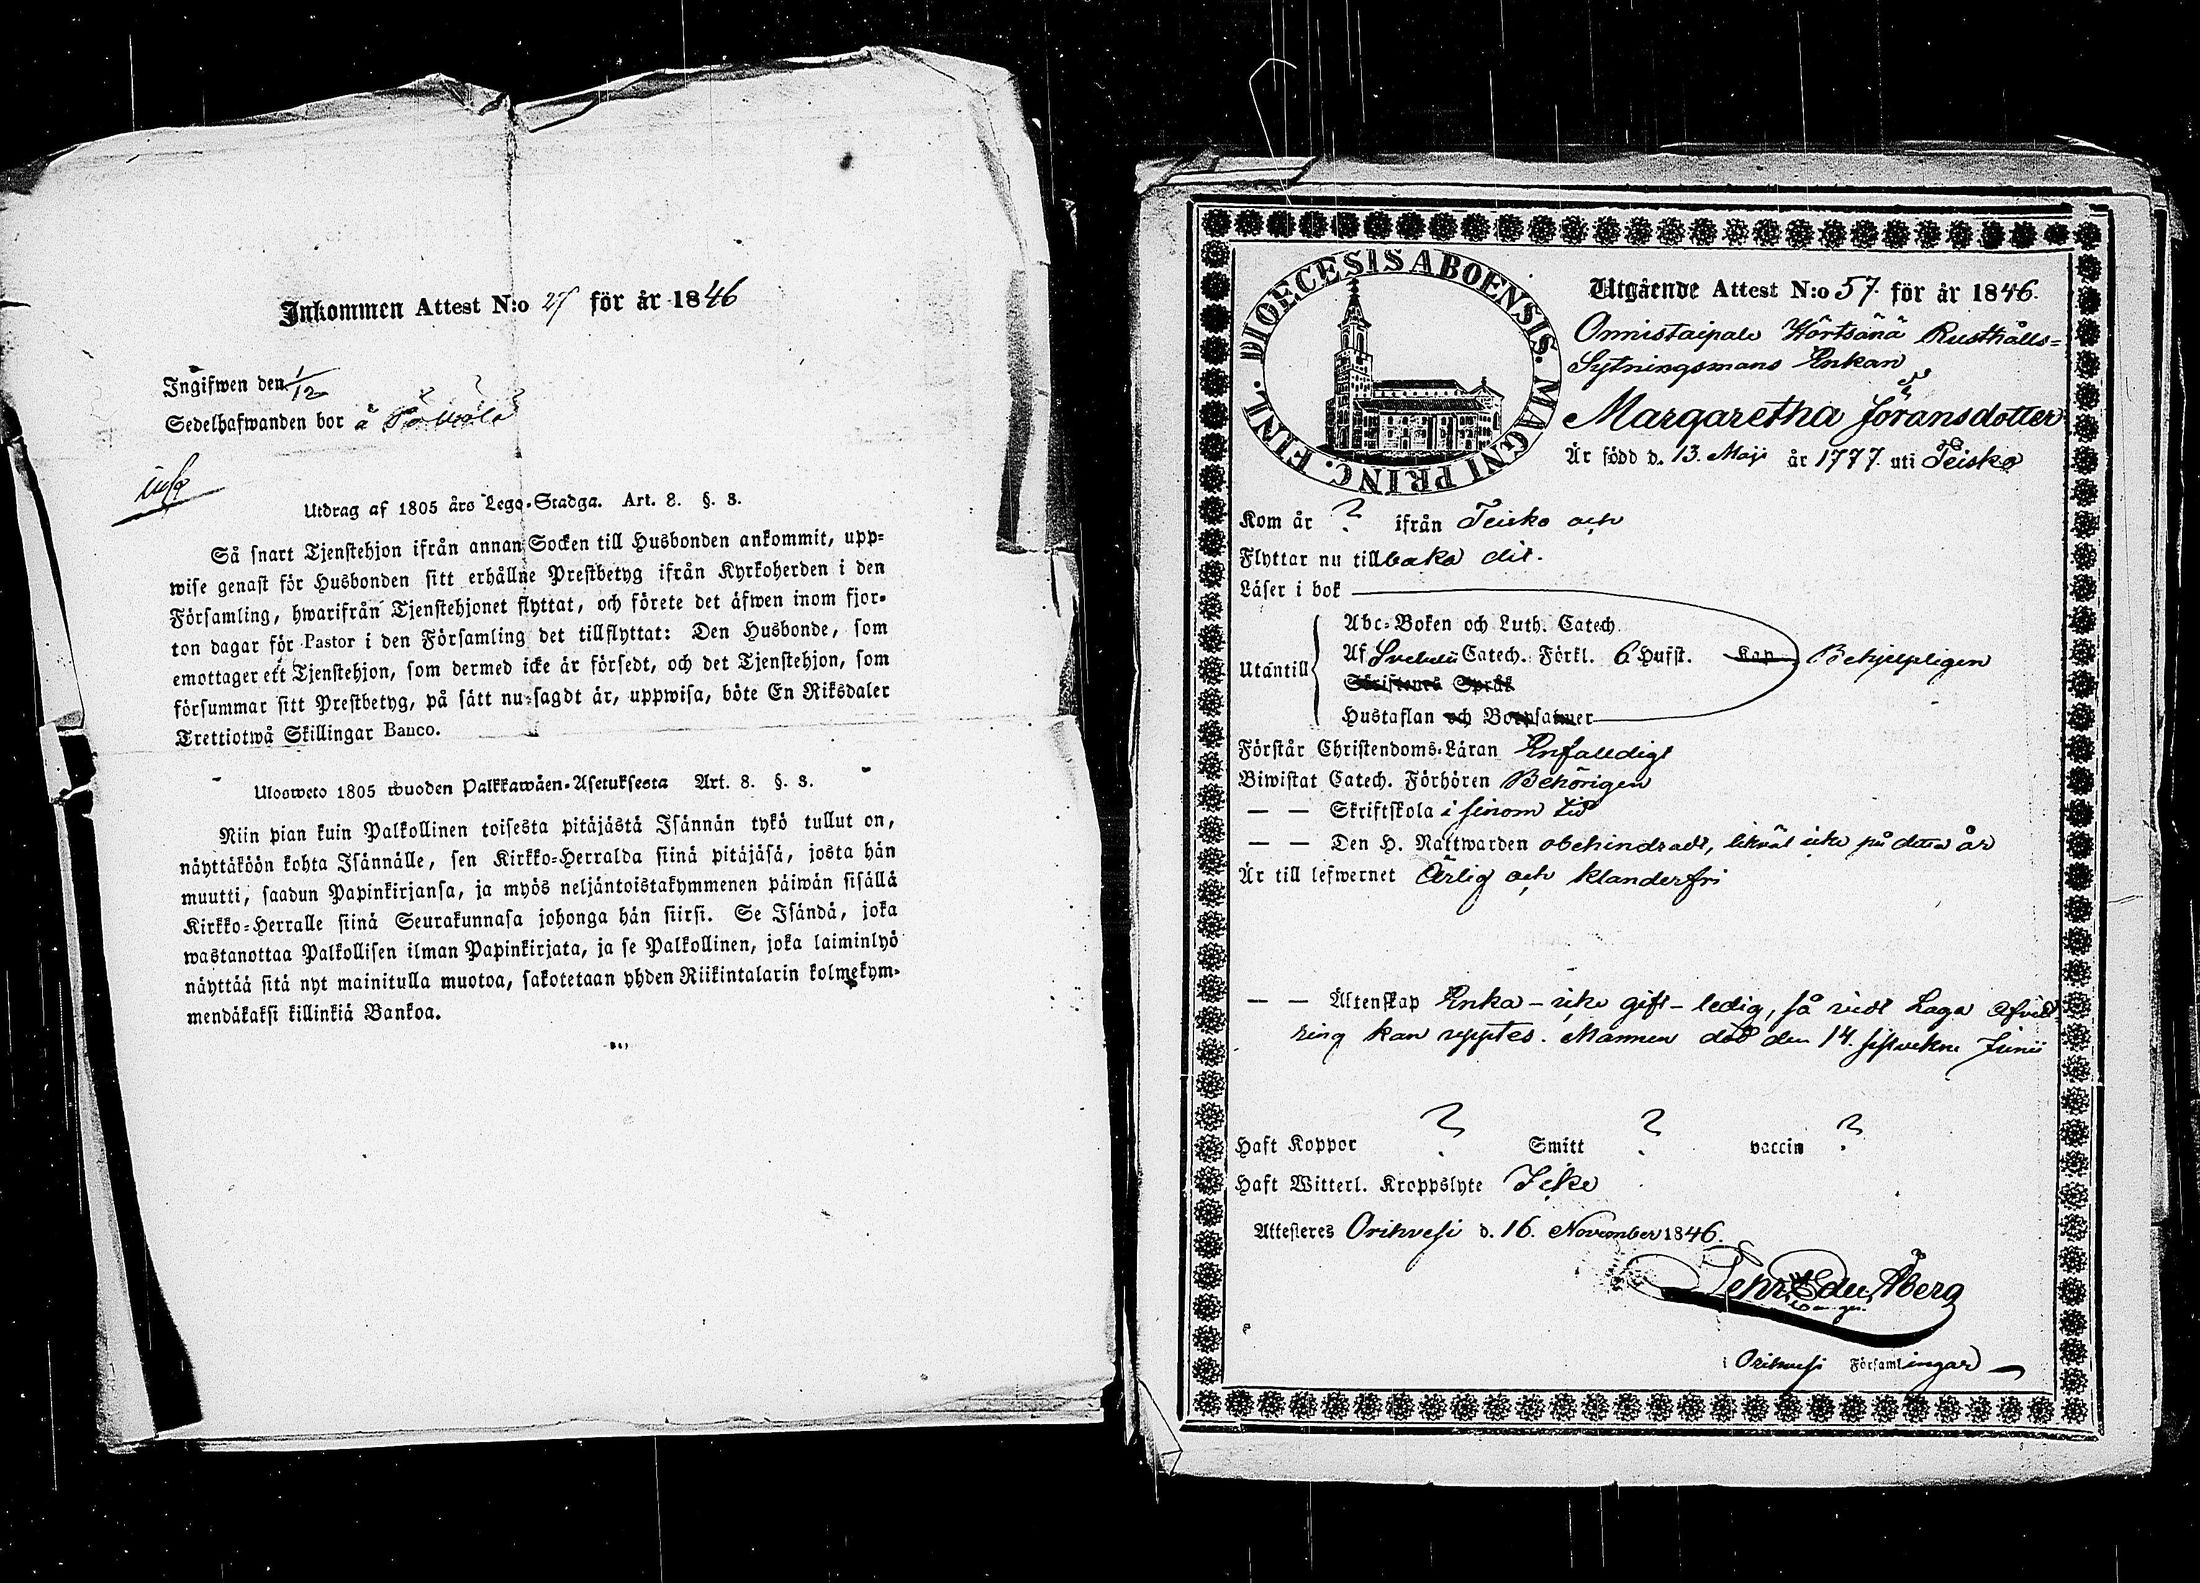 Inkommen Attest N:o 27 för år 1846
Ingifwen den 1/12
Sedelhafwanden bor å
Utdrag af 1805 års Lego-Stadga. Art. 8. §. 3.
Så snart Tjenstehjon ifrån annan Socken till Husbonden ankommit, upp=
wise genast för Husbonden sitt erhållne Prestbetyg ifrån Kyrkoherden i den
Församling, hwarifrån Tjenstehjonet flyttat, och förete det äfwen inom fjor-
ton dagar för Pastor i den Församling det tillflyttat: Den Husbonde, som
emottager ett Tjenstehjon, som dermed icke är försedt, och det Tjenstehjon, som
försummar sitt Prestbetyg, på sätt nu sagdt är, uppwisa, böte En Riksdaler
Trettiotwå Skillingar Banco.
Ulosweto 1805 wuoden Palkkawäen-Asetuksesta Art. 8. §. 3.
Niin pian kuin Palkollinen toisesta pitäjästä Isännän tykö tullut on,
näyttäköön kohta Isännälle, sen Kirkko-Herralda siinä pitäjäsä, josta hän
muutti, saadun Papinkirjansa, ja myös neljäntoistakymmenen päiwän sisällä
Kirkko=Herralle siinä Seurakunnasa johonga hän siirsi. Se Isändä, joka
wastanottaa Palkollisen ilman Papinkirjata, ja se Palkollinen, joka laiminlyö
näyttää sitä nyt mainitulla muotoa, sakotetaan yhden Riikintalarin kolmekym-
mendäkaksi killinkiä Bankoa.
DIOECESIS ABOENSIS. MAGNI PRINC. FINL.
Utgående Attest N:o 57. för år 1846.
Onnistaipale Wörtsänä Rusthålls=
Sytningsmans Enkan
Margaretha Jöransdotter
Är född d. 13. Maji år 1777. uti Teisko
Kom år ? ifrån Teisko och
Flyttar nu tillbaka dit.
Läser i bok
Utantill
Abc=Boken och Luth. Catech.
Af Svebelii Catech. Förkl. 6 Hufst. Kap Behjelpligen
Skriftenes Språk
Hustaflan och Botpsalmer
Förstår Christendoms=Läran Enfaldigt
Biwistat Catech. Förhören Behörigen
— — Skriftskola i sinom tid
— — Den H. Nattwarden obehindradt, likväl icke på detta år
Är till lefwernet Ärlig och klanderfri
— — Äktenskap Enka – icke gift – ledig, så vidt Laga Afvitt-
ring kan upptes. Mannen död den 14. sistvekne Junii
Haft Koppor ? Smitt ? vaccin ?
Haft Witterl. Kroppslyte Icke
Attesteres Orihvesi d. 16. November 1846.
Edu. Åberg
i Orihvesi Församlingar